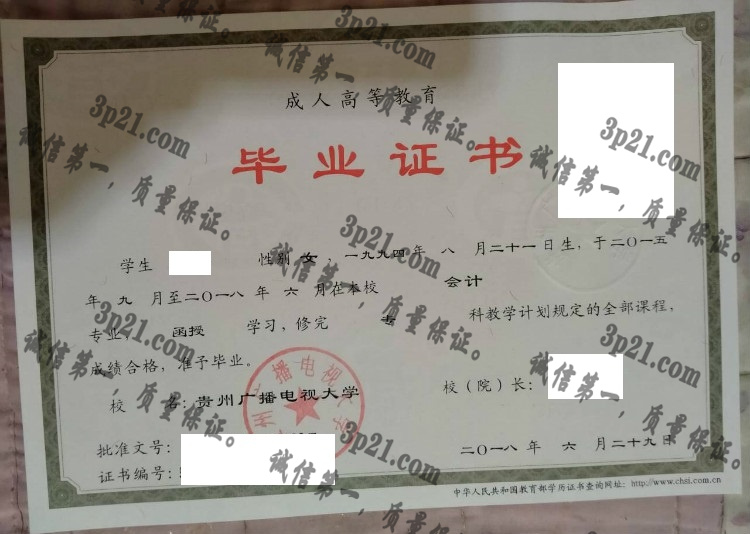 成人高等教育
毕业证书
学生 性别 女，一九九四年 八 月二十一日生，于二〇一五
年 九 月至二〇一八年 六 月在本校 会计
专业 函授 学习，修完 专 科教学计划规定的全部课程，
成绩合格，准予毕业。
校 名：贵州广播电视大学 校（院）长：
批准文号：
证书编号：
二〇一八年 六 月二十九日
中华人民共和国教育部学历证书查询网址：http://www.chsi.com.cn
3p21.com
诚信第一，质量保证。
3p21.com
诚信第一，质量保证。
3p21.com
诚信第一，质量保证。
3p21.com
诚信第一，质量保证。
3p21.com
诚信第一，质量保证。
3p21.com
诚信第一，质量保证。
3p21.com
诚信第一，质量保证。
3p21.com
诚信第一，质量保证。